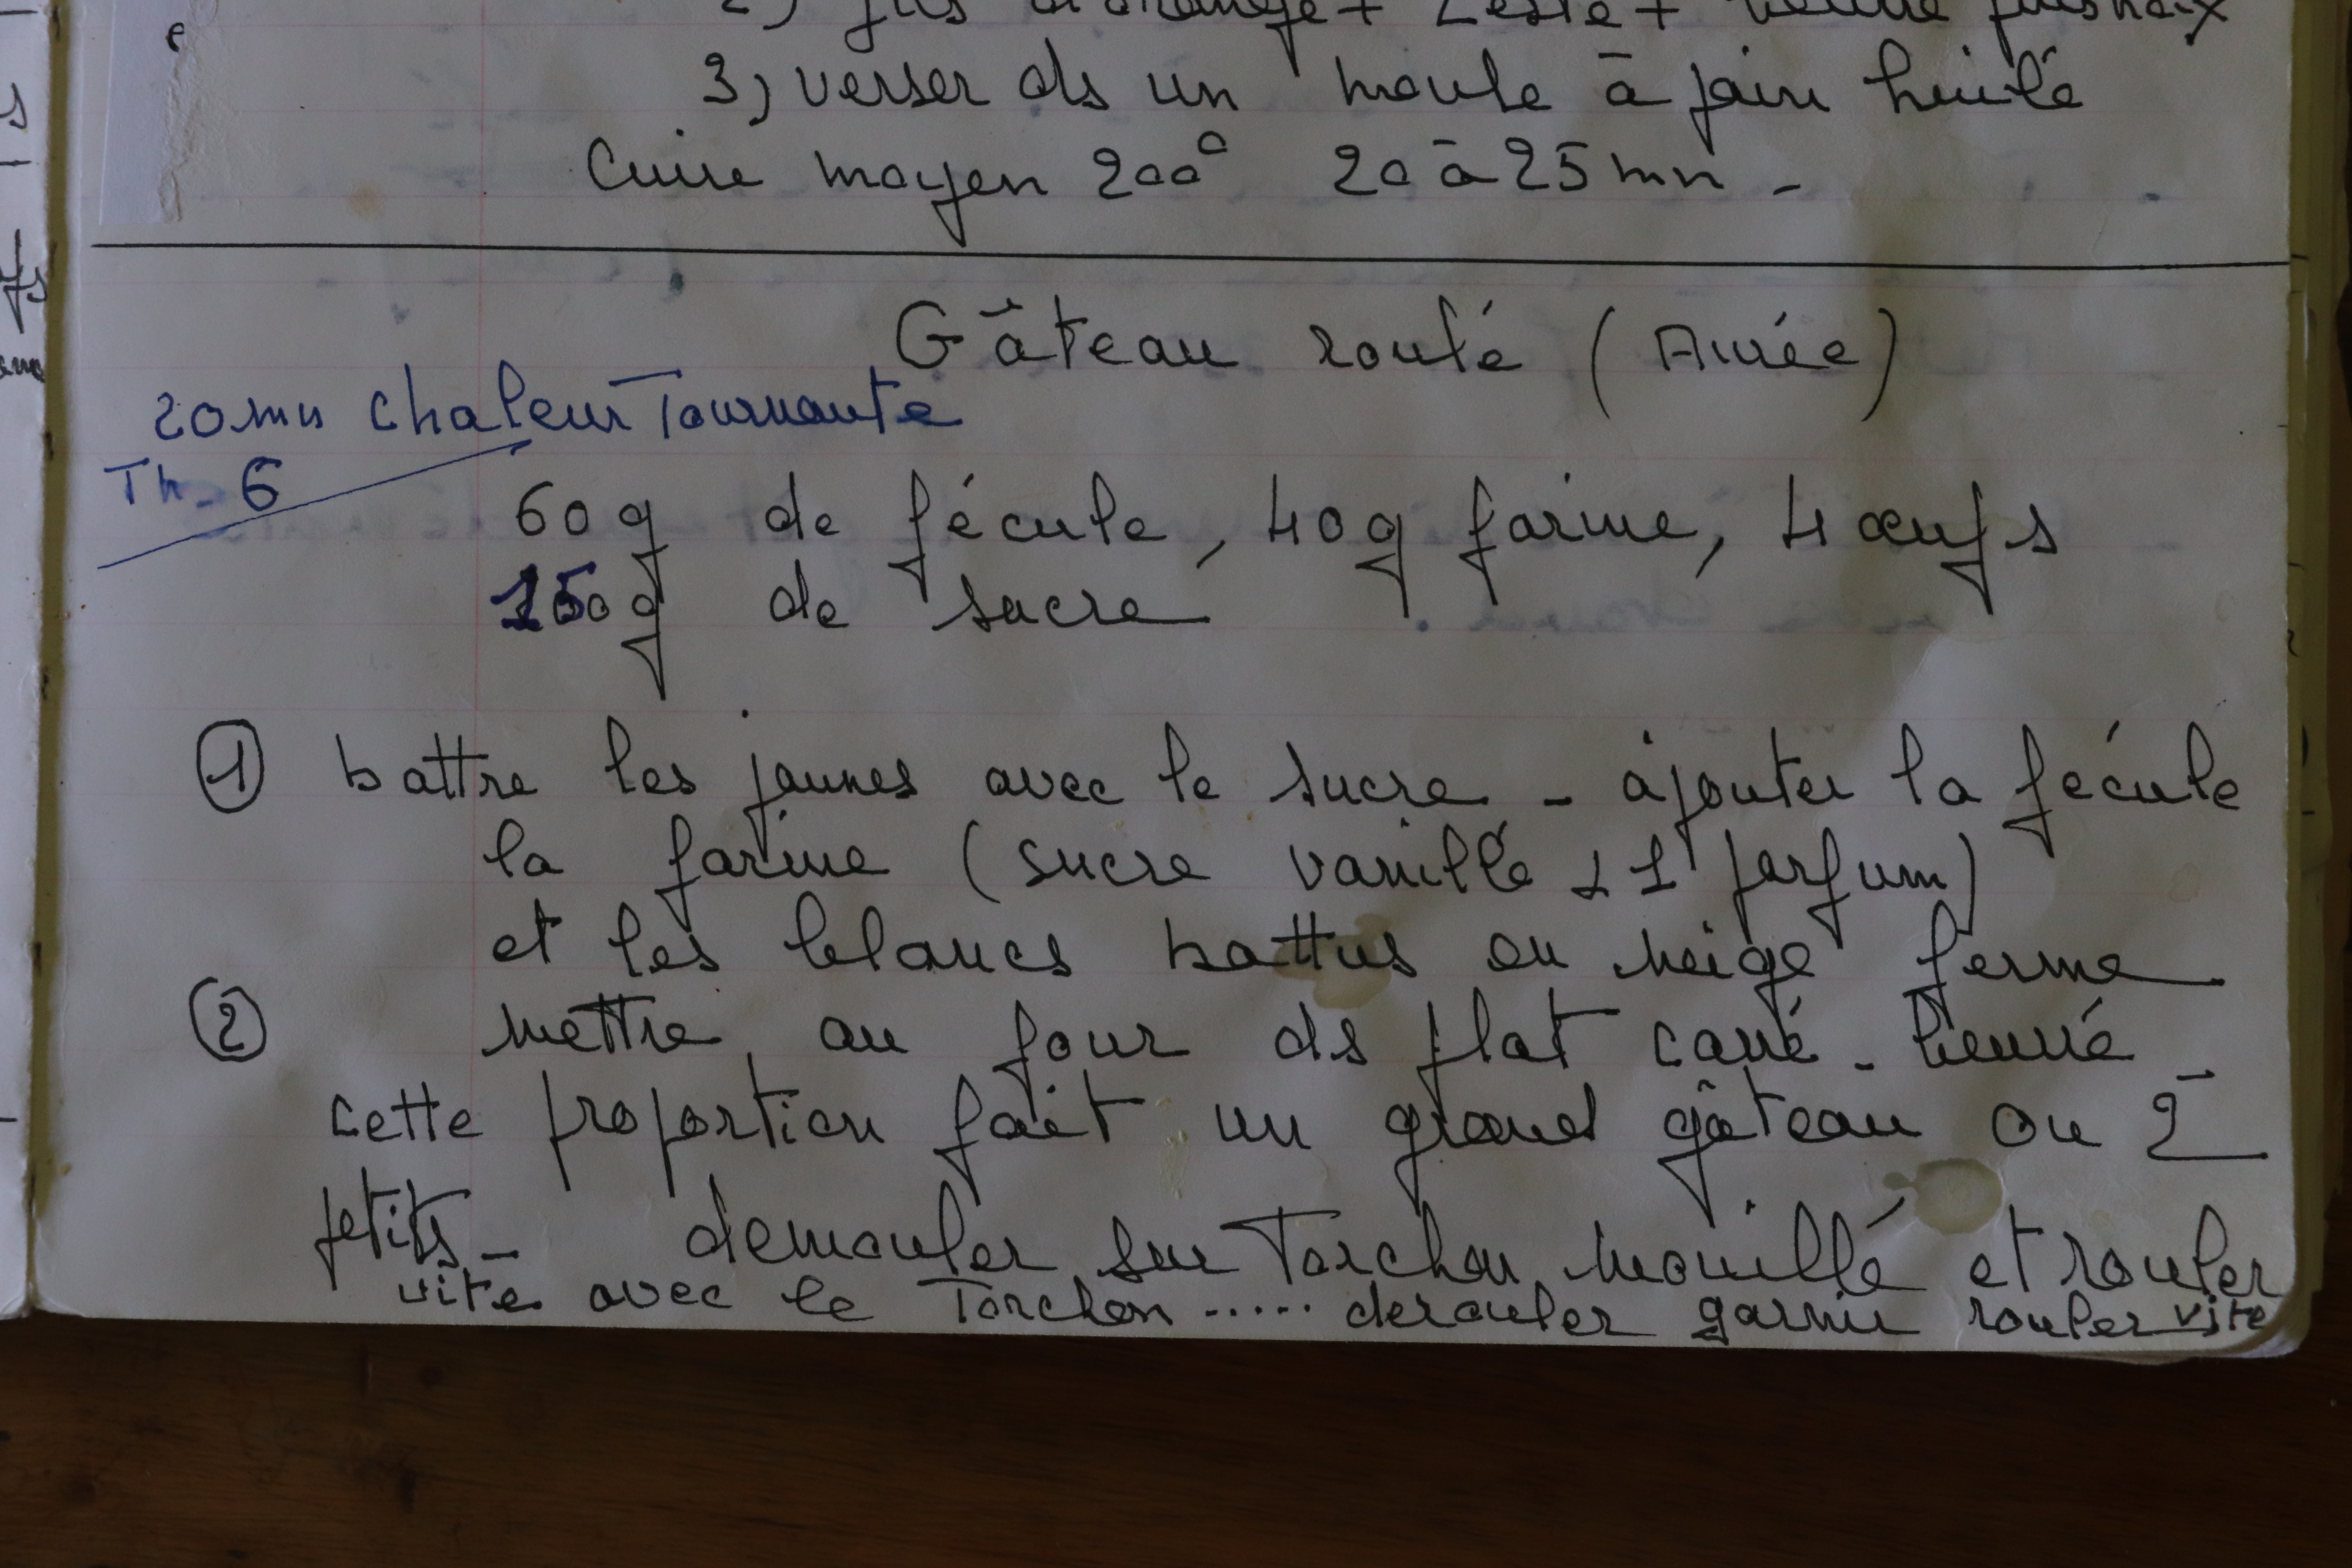 2) jus d'orange + Zeste +
3) verser ds un moule à pain huilé
Cuire moyen 200° 20 à 25 mn -
Gâteau roulé (Aimée)
20 mn chaleur Tournante
Th. 6
60 g de fécule, 40 g farine, 4 œufs
150 g de sucre
① battre les jaunes avec le sucre - ajouter la fécule
la farine (sucre vanillé 1 parfum)
et les blancs battus en neige ferme
② mettre au four ds plat carré - beurré -
cette proportion fait un grand gâteau ou 2
petits - demouler sur Torchon mouillé et rouler
vite avec le Torchon ..... derouler garnir rouler vite